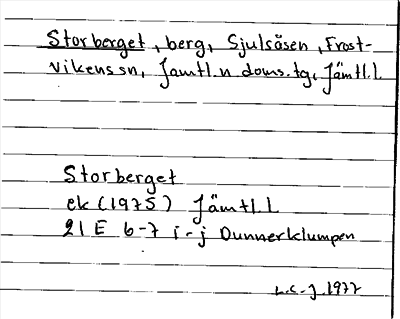 Storberget, berg, Sjulsåsen, Frost-
vikens sn, Jämtl.n doms.tg, Jämtl.l
Storberget
ek (1975) Jämtl.l
21 E 6-7 i-j Dunnerklumpen
L.C-J 1977